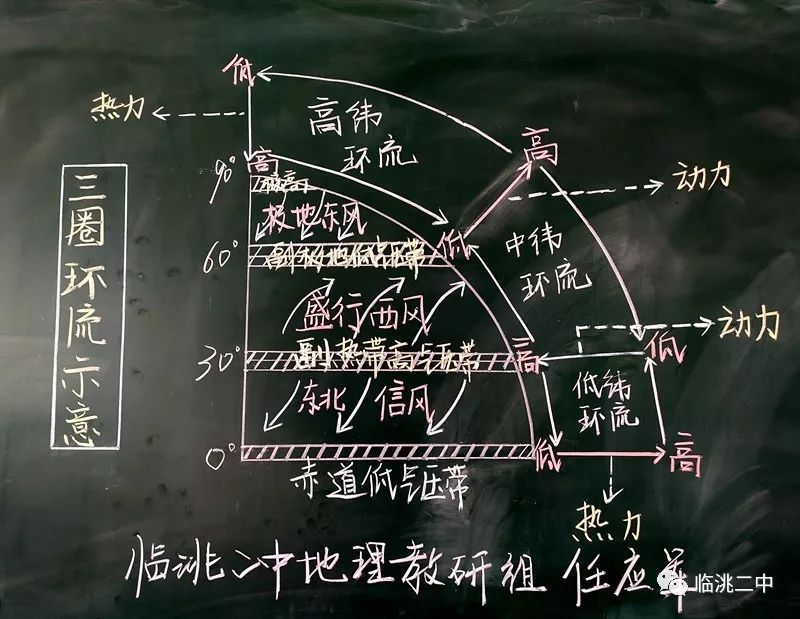 三圈环流示意
低
热力
高纬
环流
高
90°
高
极高
极地东风
动力
60°
副极地低气压带
低
中纬
环流
盛行西风
动力
30°
副热带高气压带
高
低
东北 信风
低纬
环流
0°
低
高
赤道低气压带
热力
临洮二中地理教研组 任应军
临洮二中